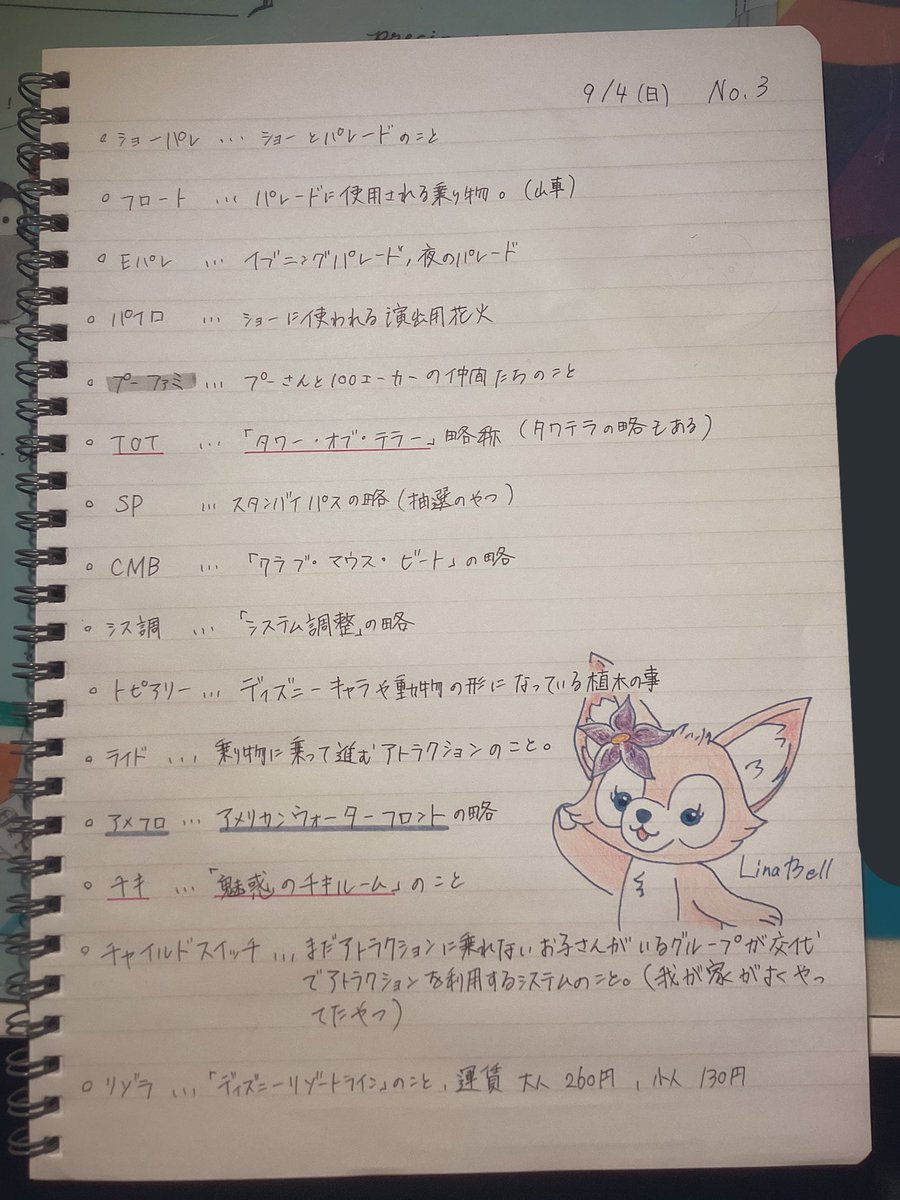 9/4(日) No.3
◦ショーパレ … ショーとパレードのこと
◦フロート … パレードに使用される乗り物。(山車)
◦Eパレ … イブニングパレード,夜のパレード
◦パイロ … ショーに使われる演出用花火
◦プーファミ … プーさんと100エーカーの仲間たちのこと
◦TOT … 「タワー・オブ・テラー」略称 (タワテラの略もある)
◦SP … スタンバイパスの略(抽選のやつ)
◦CMB … 「クラブ・マウス・ビート」の略
◦シス調 … 「システム調整」の略
◦トピアリー … ディズニーキャラや動物の形になっている植木の事
◦ライド … 乗り物に乗って進むアトラクションのこと。
◦アメフロ … アメリカンウォーターフロントの略
◦チキ … 「魅惑のチキルーム」のこと
LinaBell
◦チャイルドスイッチ … まだアトラクションに乗れないお子さんがいるグループが交代
でアトラクションを利用するシステムのこと。(我が家がよくやっ
てたやつ)
◦リゾラ … 「ディズニーリゾートライン」のこと、運賃 大人 260円 , 小人 130円